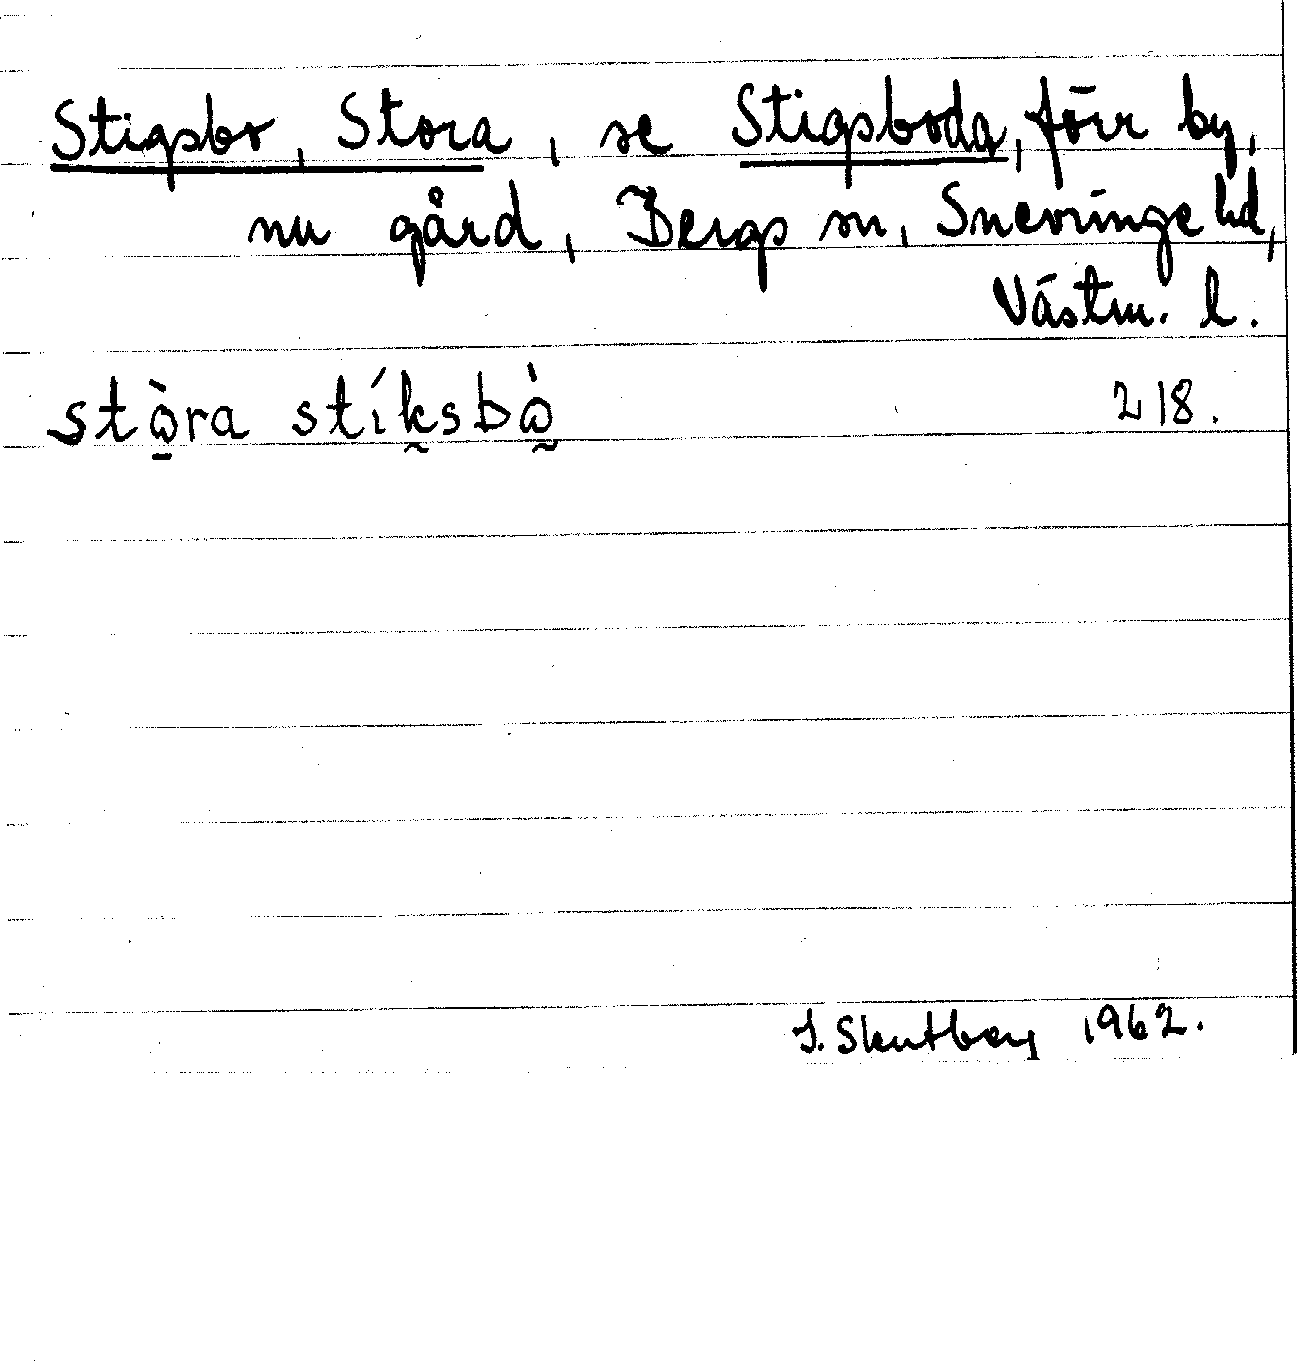 Stigsbo, Stora, se Stigsboda, förr by,
nu gård, Bergs sn, Snevringe hd,
Västm. l.
stòra stíksbò 218.
J. Skutberg 1962.